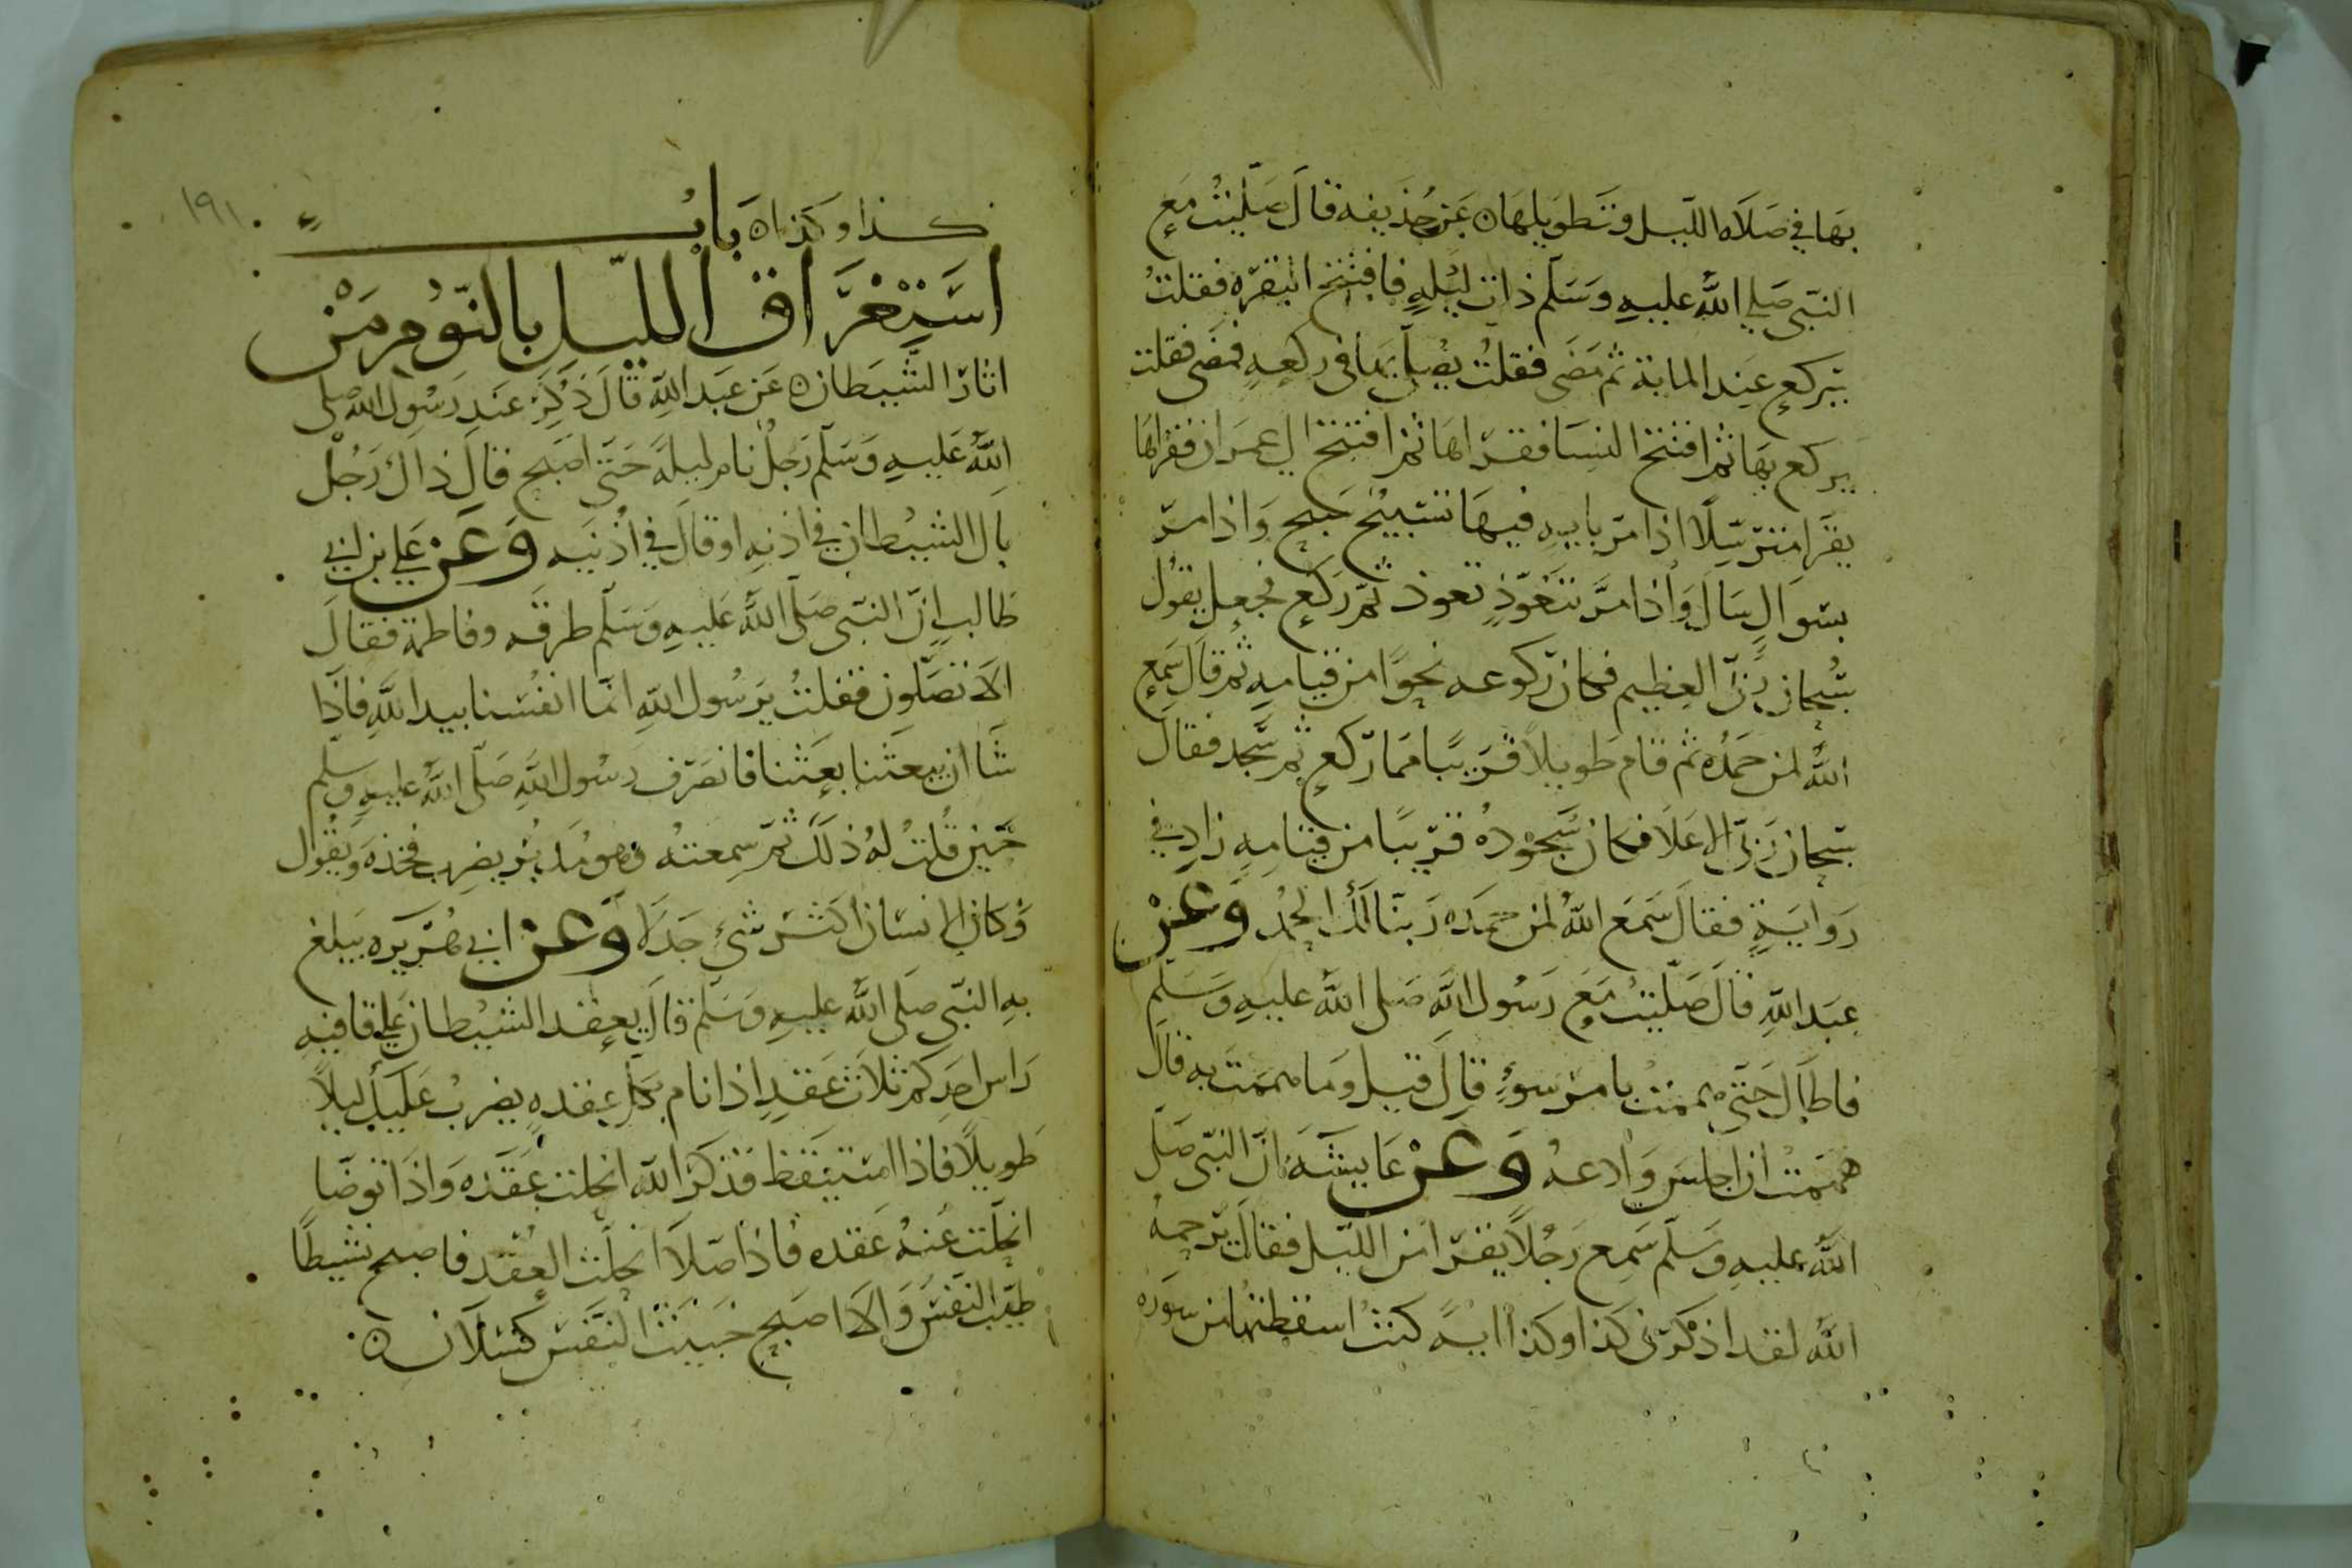 بها في صلاه الليل وتطويلها ن عن حذيفه قال صليت مع
النبي صلي الله عليه وسلم ذات ليلهٍ فافتتح البقره فقلت
يركع عند الماية ثم مضى فقلت يصلي بها في ركعهٍ فمضى فقلت
يركع بها ثم افتتح النسا فقراها ثم افتتح ال عمران فقراها
يقرا مترسّلًا اذا مرّ بايهٍ فيها تسبيح سبح واذا مرّ
بسوالٍ سال واذا مرّ بتعوّذٍ تعوذ ثم ركع فجعل يقول
سبحان ربّي العظيم فكان ركوعه نحوًا من قيامه ثم قال سمع
الله لمن حمده ثم قام طويلًا قريبًا مما ركع ثم سجد فقال
سبحان ربّي الاعلا فكان سجوده قريبًا من قيامه زاد في
رواية فقال سمع الله لمن حمده ربنا لك الحمد وعن
عبد الله قال صليت مع رسول الله صلى الله عليه وسلم
فاطال حتى هممت بامر سوءٍ قال قيل وما هممت به قال
هممت ان اجلس وادعه وعن عايشه ان النبي صلى
الله عليه وسلم سمع رجلًا يقرا من الليل فقال يرحمه
الله لقد اذكرني كذا وكذا ايه كنت اسقطتها من سوره
كذا وكذا ن باب
استغراق الليل بالنوم من
اثار الشيطان ن عن عبد الله قال ذكر عند رسول الله صلى
الله عليه وسلم رجلٌ نام ليله حتى اصبح قال ذاك رجل
بال الشيطان في اذنه او قال في اذنيه وعن علي بن ابي
طالب ان النبي صلى الله عليه وسلم طرقه وفاطمة فقال
الا تصلون فقلت يرسول الله انما انفسنا بيد الله فاذا
شا ان يبعثنا بعثنا فانصرف رسول الله صلى الله عليه وسلم
حين قلت له ذلك ثم سمعته وهو مدبر يضرب فخذه ويقول
وكان الانسان اكثر شيءٍ جدلا وعن ابي هريره يبلغ
به النبي صلى الله عليه وسلم قال يعقد الشيطان علي قافيه
راس احدكم ثلاث عقدٍ اذا نام بكل عقدهٍ يضرب عليك ليلًا
طويلًا فاذا استيقظ فذكر الله انحلت عقده واذا توضا
انحلت عنه عقده فاذا صلا انحلت العقد فاصبح نشيطًا
طيب النفس والا اصبح خبيث النفس كسلان ن
١٩١